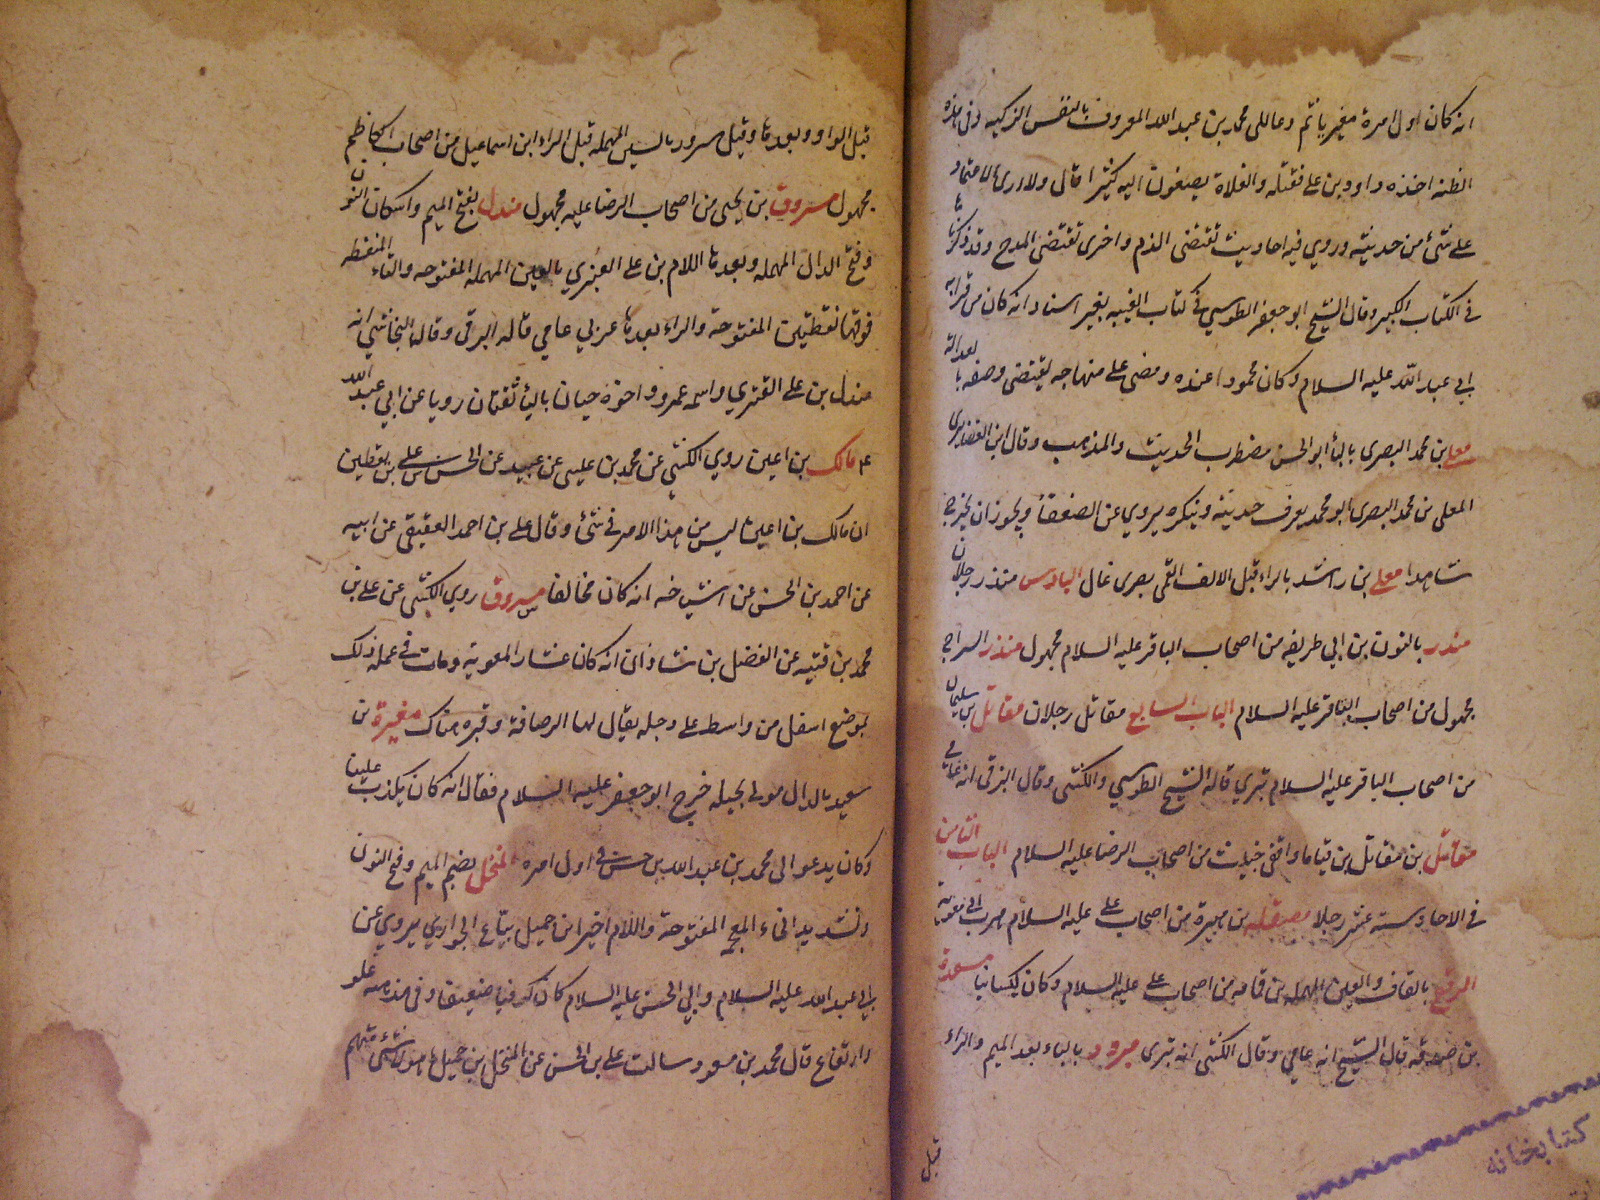 انه كان اول امره مغيريا ثم دعا الى محمد بن عبدالله المعروف بالنفس الزكيه وفى هذه
الظنه اخذه داود بن على فقتله والغلاة يضيفون اليه كثيرا قال ولا ارى الاعتماد
على شئ من حديثه وروي فيه احاديث تقتضى الذم واخرى تقتضى المدح وقد ذكرناها
فى الكتاب الكبير وقال الشيخ ابو جعفر الطوسي فى كتاب الغيبه بغير اسناد انه كان من قوام
ابي عبد الله عليه السلام وكان محمودا عنده ومضى على منهاجه يقتضى وصفه بالعدالة
معلى بن محمد البصرى بالبا ابو الحسن مضطرب الحديث والمذهب وقال ابن الغضايرى
المعلى بن محمد البصرى ابو محمد يعرف حديثه وينكره يروي عن الضعفا ويجوز ان يخرج
شاهدا معلى بن راشد بالراء قبل الالف القمى بصرى غال الباب السادس منذر رجلان
منذر بالنون بن ابي طريفه من اصحاب الباقر عليه السلام مجهول منذر السراج
مجهول من اصحاب الباقر عليه السلام الباب السابع مقاتل رجلان مقاتل بن سليمان
من اصحاب الباقر عليه السلام بتري قاله الشيخ الطوسي والكشى وقال البرقى انه عامى
مقاتل بن مقاتل بن قياما واقفى خبيث من اصحاب الرضا عليه السلام الباب الثامن
فى الاحاد ستة عشر رجلا مصقله بن هبيرة من اصحاب على عليه السلام هرب الى معوية
المرقع بالقاف والعين المهمله بن قمامه من اصحاب على عليه السلام وكان كيسانيا مسعدة
بن صدقه قال الشيخ انه عامي وقال الكشى انه بترى مبرور بالباء بعد الميم والراء
قبل
كتابخانه
قبل الواو وبعدها وقيل مسرور بالسين المهمله قبل الراء ابن اسماعيل من اصحاب الكاظم
مجهول مسروق بن يحيى من اصحاب الرضا عليه مجهول مندل بفتح الميم واسكان النون
وفتح الدال المهمله وبعدها اللام بن على العنزي بالعين المهمله المفتوحه والتاء المنقطه
فوقها نقطتين المفتوحة والراء بعدها عربي عامي قاله البرقى وقال النجاشي انه
مندل بن على العتري واسمه عمرو واخوه حيان باليا ثقتان رويا عن ابي عبد الله
ع مالك بن اعين روي الكشى عن محمد بن عيسى عن عبيد عن الحسن بن على بن يقطين
ان مالك بن اعين ليس من هذا الامر فى شئ وقال على بن احمد العقيقي عن ابيه
عن احمد بن الحسن عن اشياخه انه كان مخالفا مسروق روي الكشى عن على بن
محمد بن قتيبه عن الفضل بن شاذان انه كان عشارا لمعوية ومات فى عمله ذلك
بموضع اسفل من واسط على دجله يقال لها الرصافة وقبره هناك مغيرة بن
سعيد بالدال مولى بجيله خرج ابو جعفر عليه السلام فقال انه كان يكذب علينا
وكان يدعو الى محمد بن عبد الله بن حسن فى اول امره المنخل بضم الميم وفتح النون
وتشديد الخاء المعجمه المفتوحة واللام اخيرا بن جميل بياع الجواري يروي عن
ابي عبد الله عليه السلام وابي الحسن عليه السلام كان كوفيا ضعيفا وفى مذهبه غلو
وارتفاع قال محمد بن مسعود سالت على بن الحسن عن المنخل بن جميل فقال هو لا شئ متهم